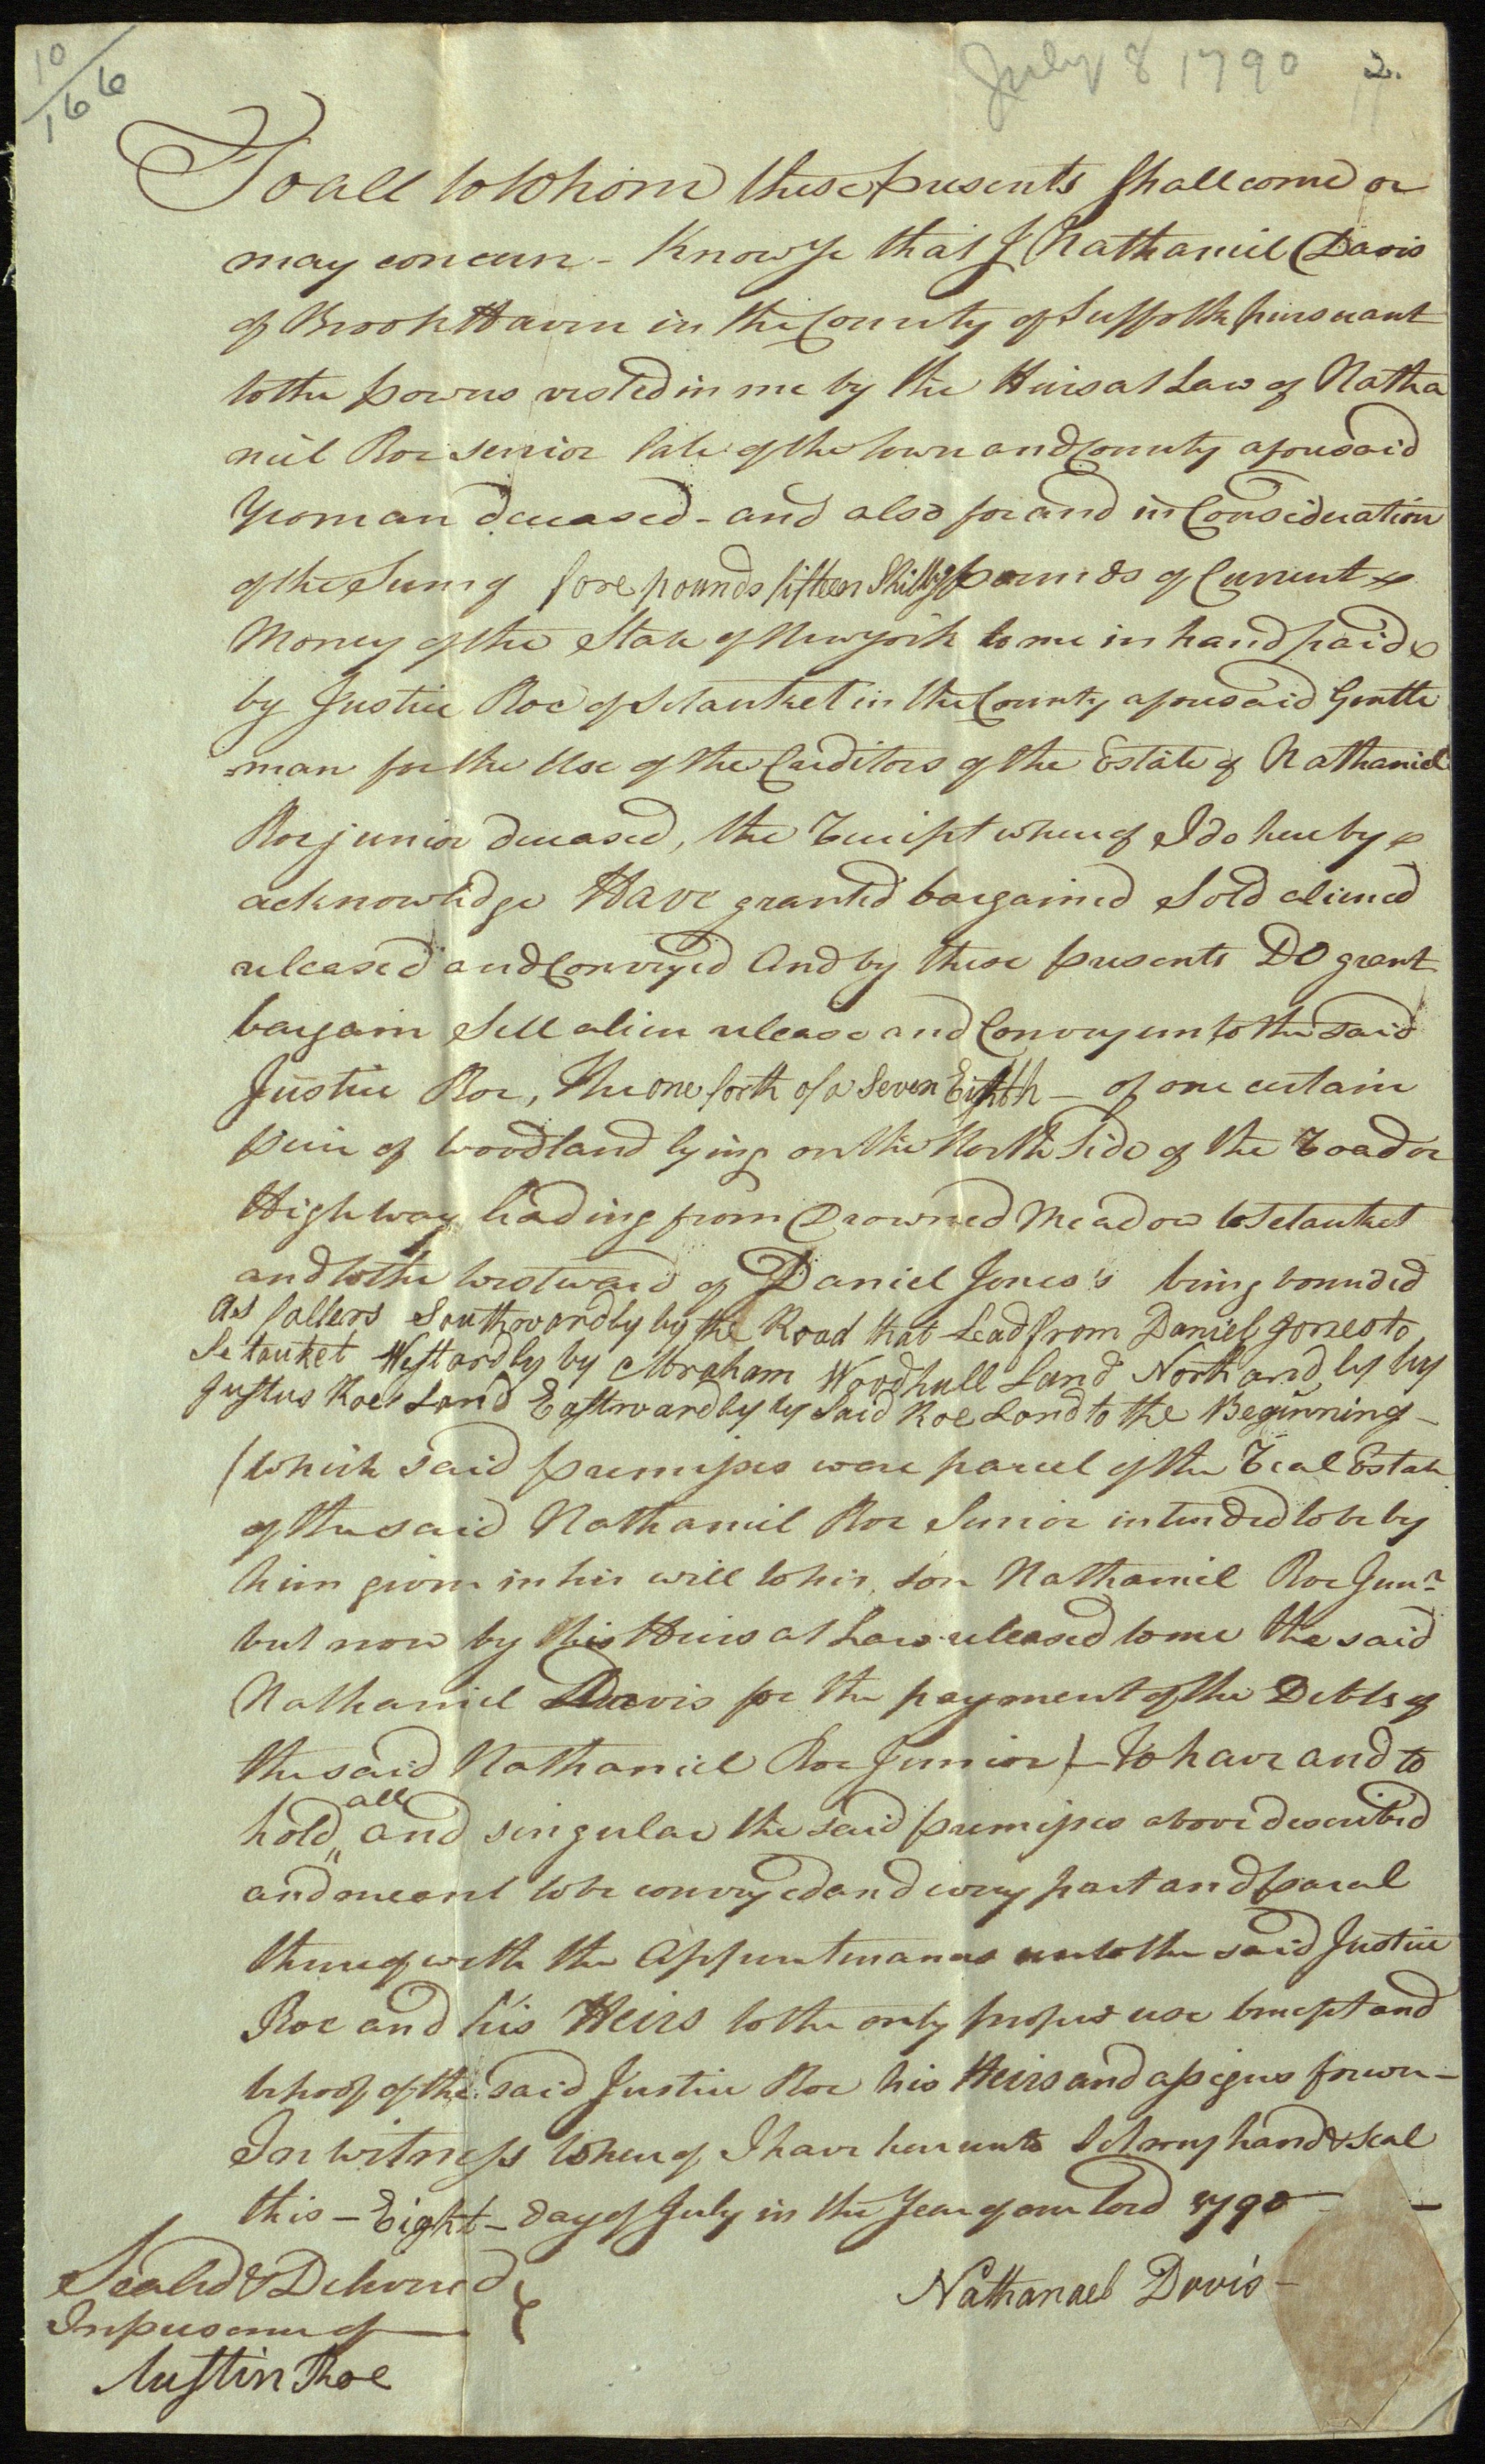 10/166
July 8 1790 2.
To all to Whom these presents Shall come or
may concern - Know Ye that I Nathaniel Davis
of Brook Haven in the County of Suffolk pursuant
to the powers vested in me by the Heirs at Law of Natha
niel Roe senior late of the town and County aforesaid
Yeoman deceased - and also for and in Consideration
of the Sum of fore pounds fifteen Shillgs pounds of Current
Money of the State of New york to me in hand paid
by Justice Roe of Setauket in the County aforesaid Gentle
man for the Use of the Creditors of the Estate of Nathaniel
Roe junior deceased, the Receipt whereof I do hereby
acknowledge Have granted bargained Sold aliened
released and Conveyed And by these presents DO grant
bargain Sell alien release and Convey unto the said
Justice Roe, The one forth of a Seven Eighth - of one certain
peice of woodland lying on the North Side of the Road or
High way leading from Drowned Meadow to Setauket
and to the westward of Daniel Jones's being bounded
as fallers Southwardly by the Road that Lead from Daniel Jones to
Setauket Westardly by Abraham Woodhull Land North ard ly by
Justus Roes Land Eastwardly by Said Roe Land to the Beginning -
(Which said premises were parcel of the Real Estate
of the said Nathaniel Roe Senior intended to be by
him given in his will to his son Nathaniel Roe Junr
but now by his Heirs at Law released to me the said
Nathaniel Davis for the payment of the Debts of
the said Nathaniel Roe Junior) - To have and to
hold all and singular the said premises above described
and meant to be conveyed and every part and parcel
thereof with the Appurtenances unto the said Justice
Roe and his Heirs to the only proper use benefit and
behoof of the said Justice Roe his Heirs and assigns forever -
In witness whereof I have hereunto Set my hand & Seal
this - Eight - day of July in the Year of our lord 1790 -
Sealed & Delivered
In presence of
Nathanael Davis -
Austin Roe